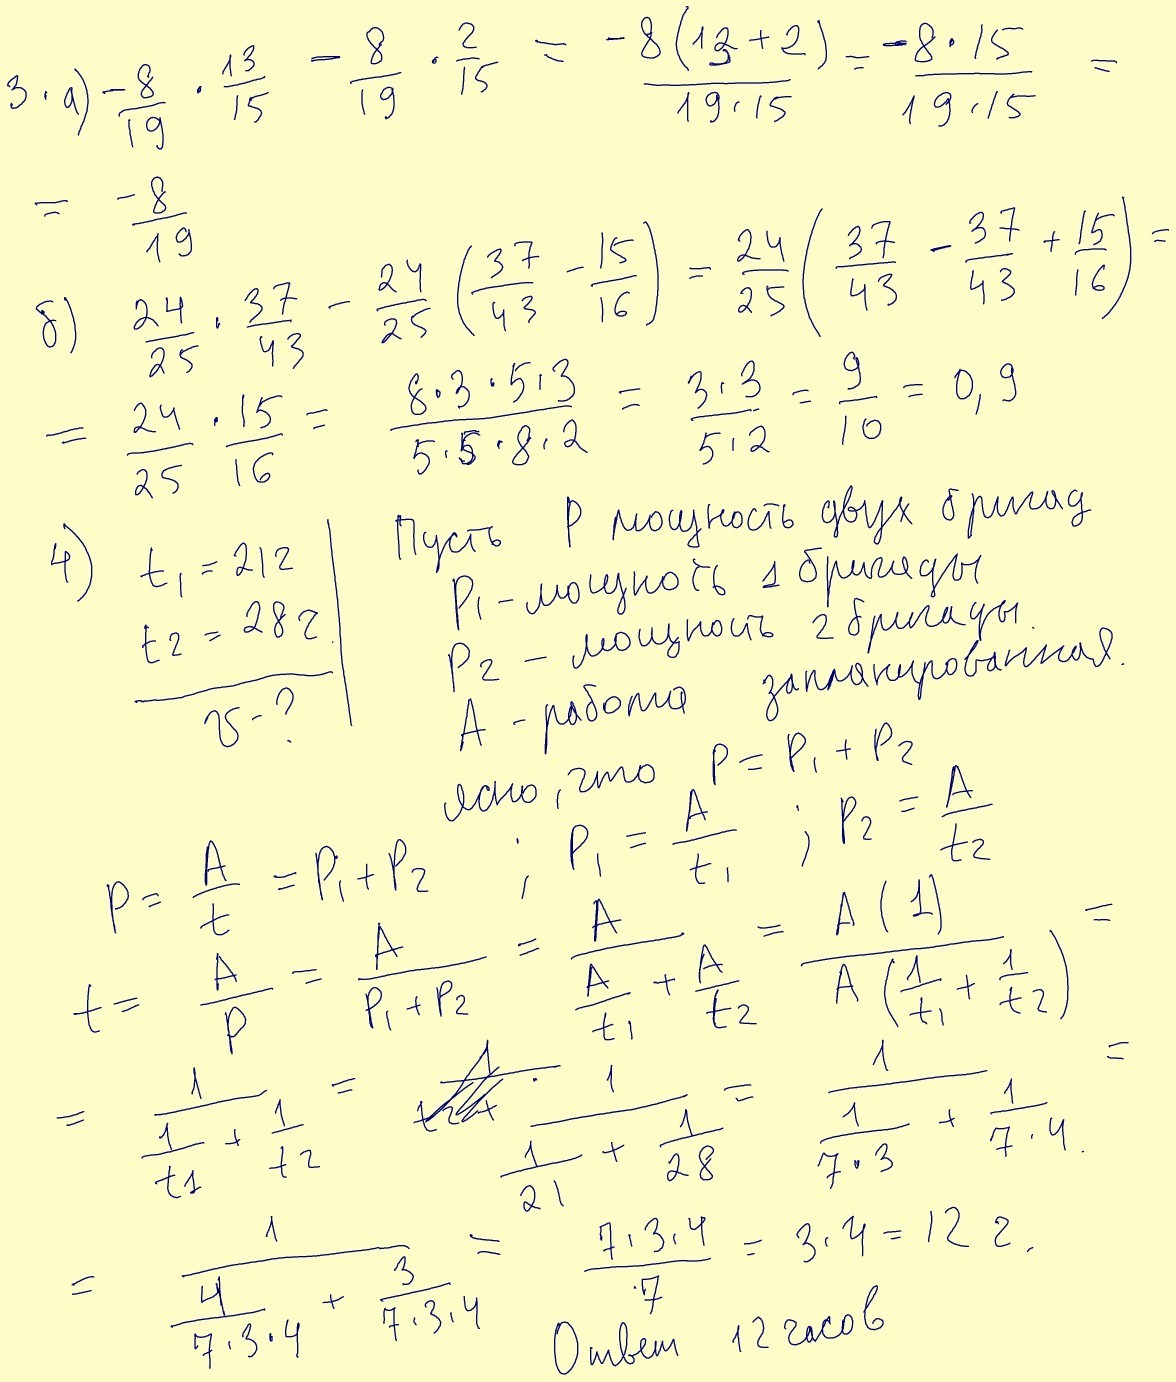 3. а) -8/19 · 13/15 - 8/19 · 2/15 = -8(13+2)/19·15 = -8·15/19·15 =
= -8/19
б) 24/25 · 37/43 - 24/25 (37/43 - 15/16) = 24/25 (37/43 - 37/43 + 15/16) =
= 24/25 · 15/16 = 8·3·5·3/5·5·8·2 = 3·3/5·2 = 9/10 = 0,9
4) t1 = 21г Пусть P мощность двух бригад
t2 = 28г. P1 - мощность 1 бригады
P2 - мощность 2 бригады.
t - ? A - работа запланированная.
ясно, что P = P1 + P2
P = A/t = P1 + P2 ; P1 = A/t1 ; P2 = A/t2
t = A/P = A/(P1 + P2) = A/(A/t1 + A/t2) = A(1)/A(1/t1 + 1/t2) =
= 1/(1/t1 + 1/t2) = 1/(1/21 + 1/28) = 1/(1/7·3 + 1/7·4) =
= 1/(4/7·3·4 + 3/7·3·4) = 7·3·4/7 = 3·4 = 12 г.
Ответ 12 часов